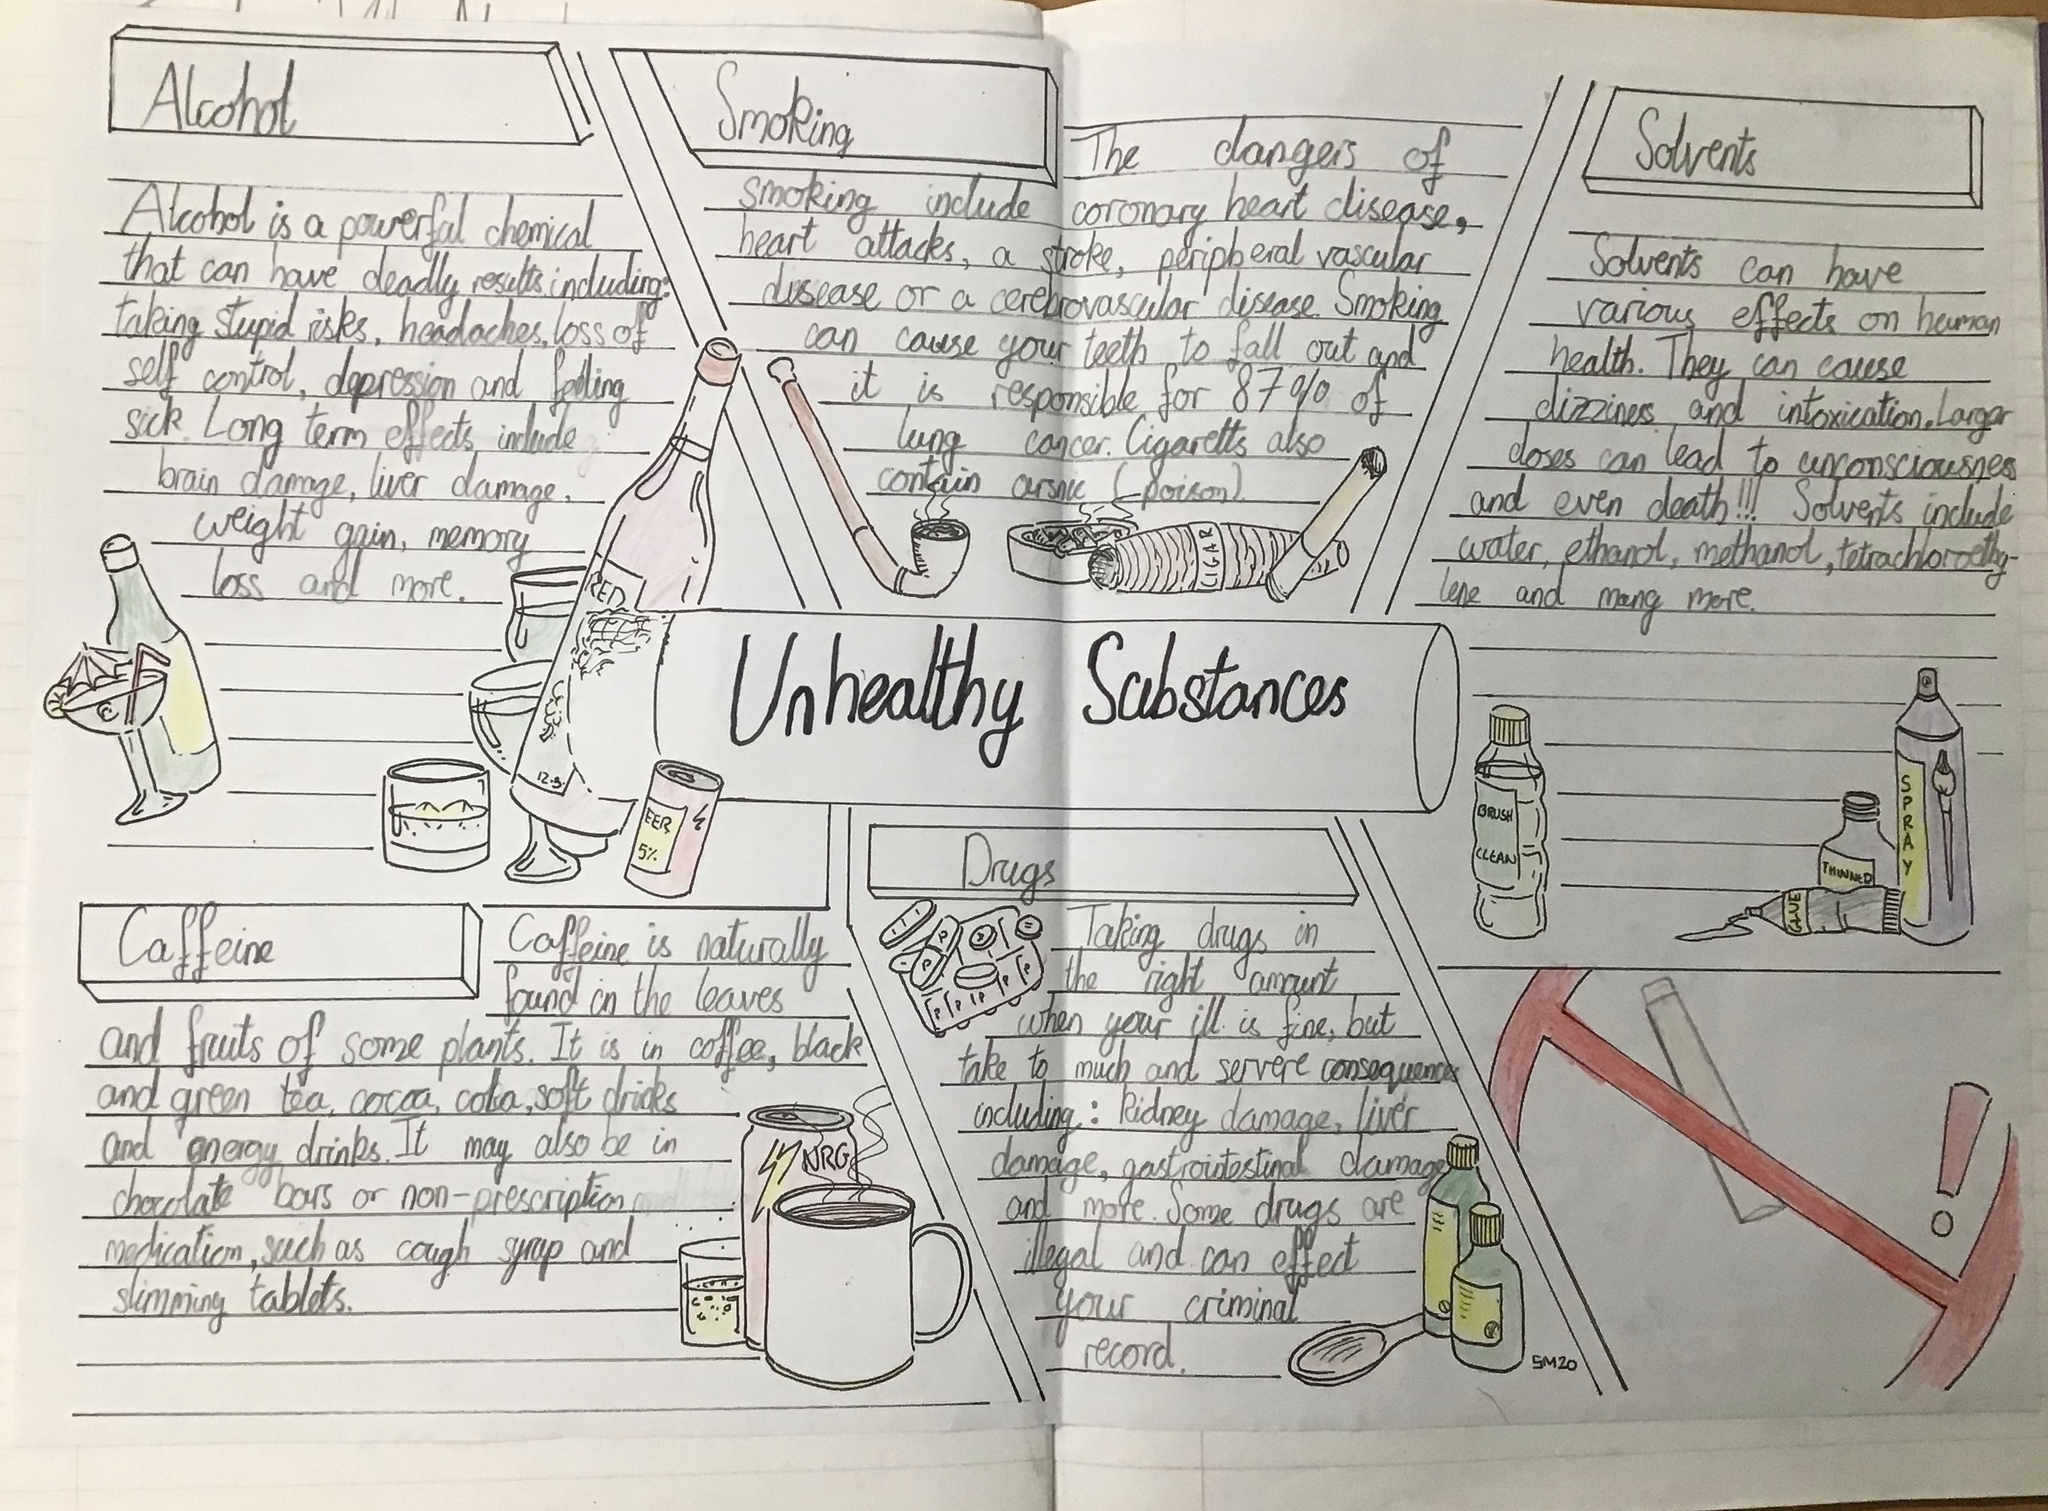 Alcohol
Alcohol is a powerful chemical
that can have deadly results including:
taking stupid risks, headaches, loss of
self control, depression and feeling
sick. Long term effects include
brain damage, liver damage,
weight gain, memory
loss and more.
RED
12.5.
EER
5%
Smoking
The dangers of
smoking include coronary heart disease,
heart attacks, a stroke, peripheral vascular
disease or a cerebrovascular disease. Smoking
can cause your teeth to fall out and
it is responsible for 87% of
lung cancer. Cigaretts also
contain arsnic (poison).
CIGAR
Solvents
Solvents can have
various effects on human
health. They can cause
dizziness and intoxication. Larger
doses can lead to unconsciousnes
and even death!!! Solvents include
water, ethanol, methanol, tetrachloroethy-
lene and many more.
BRUSH
CLEAN
THINNED
GLUE
SPRAY
Unhealthy Substances
Caffeine
Caffeine is naturally
found in the leaves
and fruits of some plants. It is in coffee, black
and green tea, cocoa, cola, soft drinks
and energy drinks. It may also be in
chocolate bars or non-prescription
medication, such as cough syrup and
slimming tablets.
NRG
Drugs
Taking drugs in
the right amount
when your ill is fine, but
take to much and servere consequences
including: kidney damage, liver
damage, gastrointestinal damage
and more. Some drugs are
illegal and can effect
your criminal
record.
SM20
!